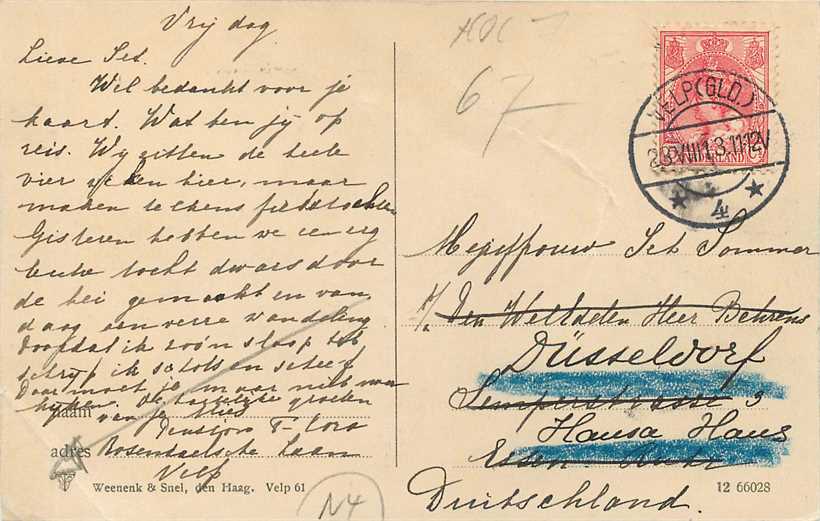 Vrijdag
Lieve Jet.
Wel bedankt voor je
kaart. Wat ben jij op
reis. Wij zitten de heele
vier weken hier, maar
maken telkens fietstochten
Gisteren hebben we een erg
leuke tocht dwars door
de hei gemaakt en van
daag een verre wandeling
Doordat ik zoo'n slaap heb
schrijf ik schots en scheef
Daar moet je maar niet naar
kijken. De hartelijke groeten
van je
naam
adres Rosendaelsche laan
Velp
Weenenk & Snel, den Haag. Velp 61
67
VELP (GLD.)
23.VIII.13.11-12V
4
NEDERLAND
Mejuffrouw Jet Sommer
a/ Den Weledelen Heer Behrens
Düsseldorf
Semperstrasse 3
Hansa Haus
Essen Ruhr
Duitschland.
12 66028
N4